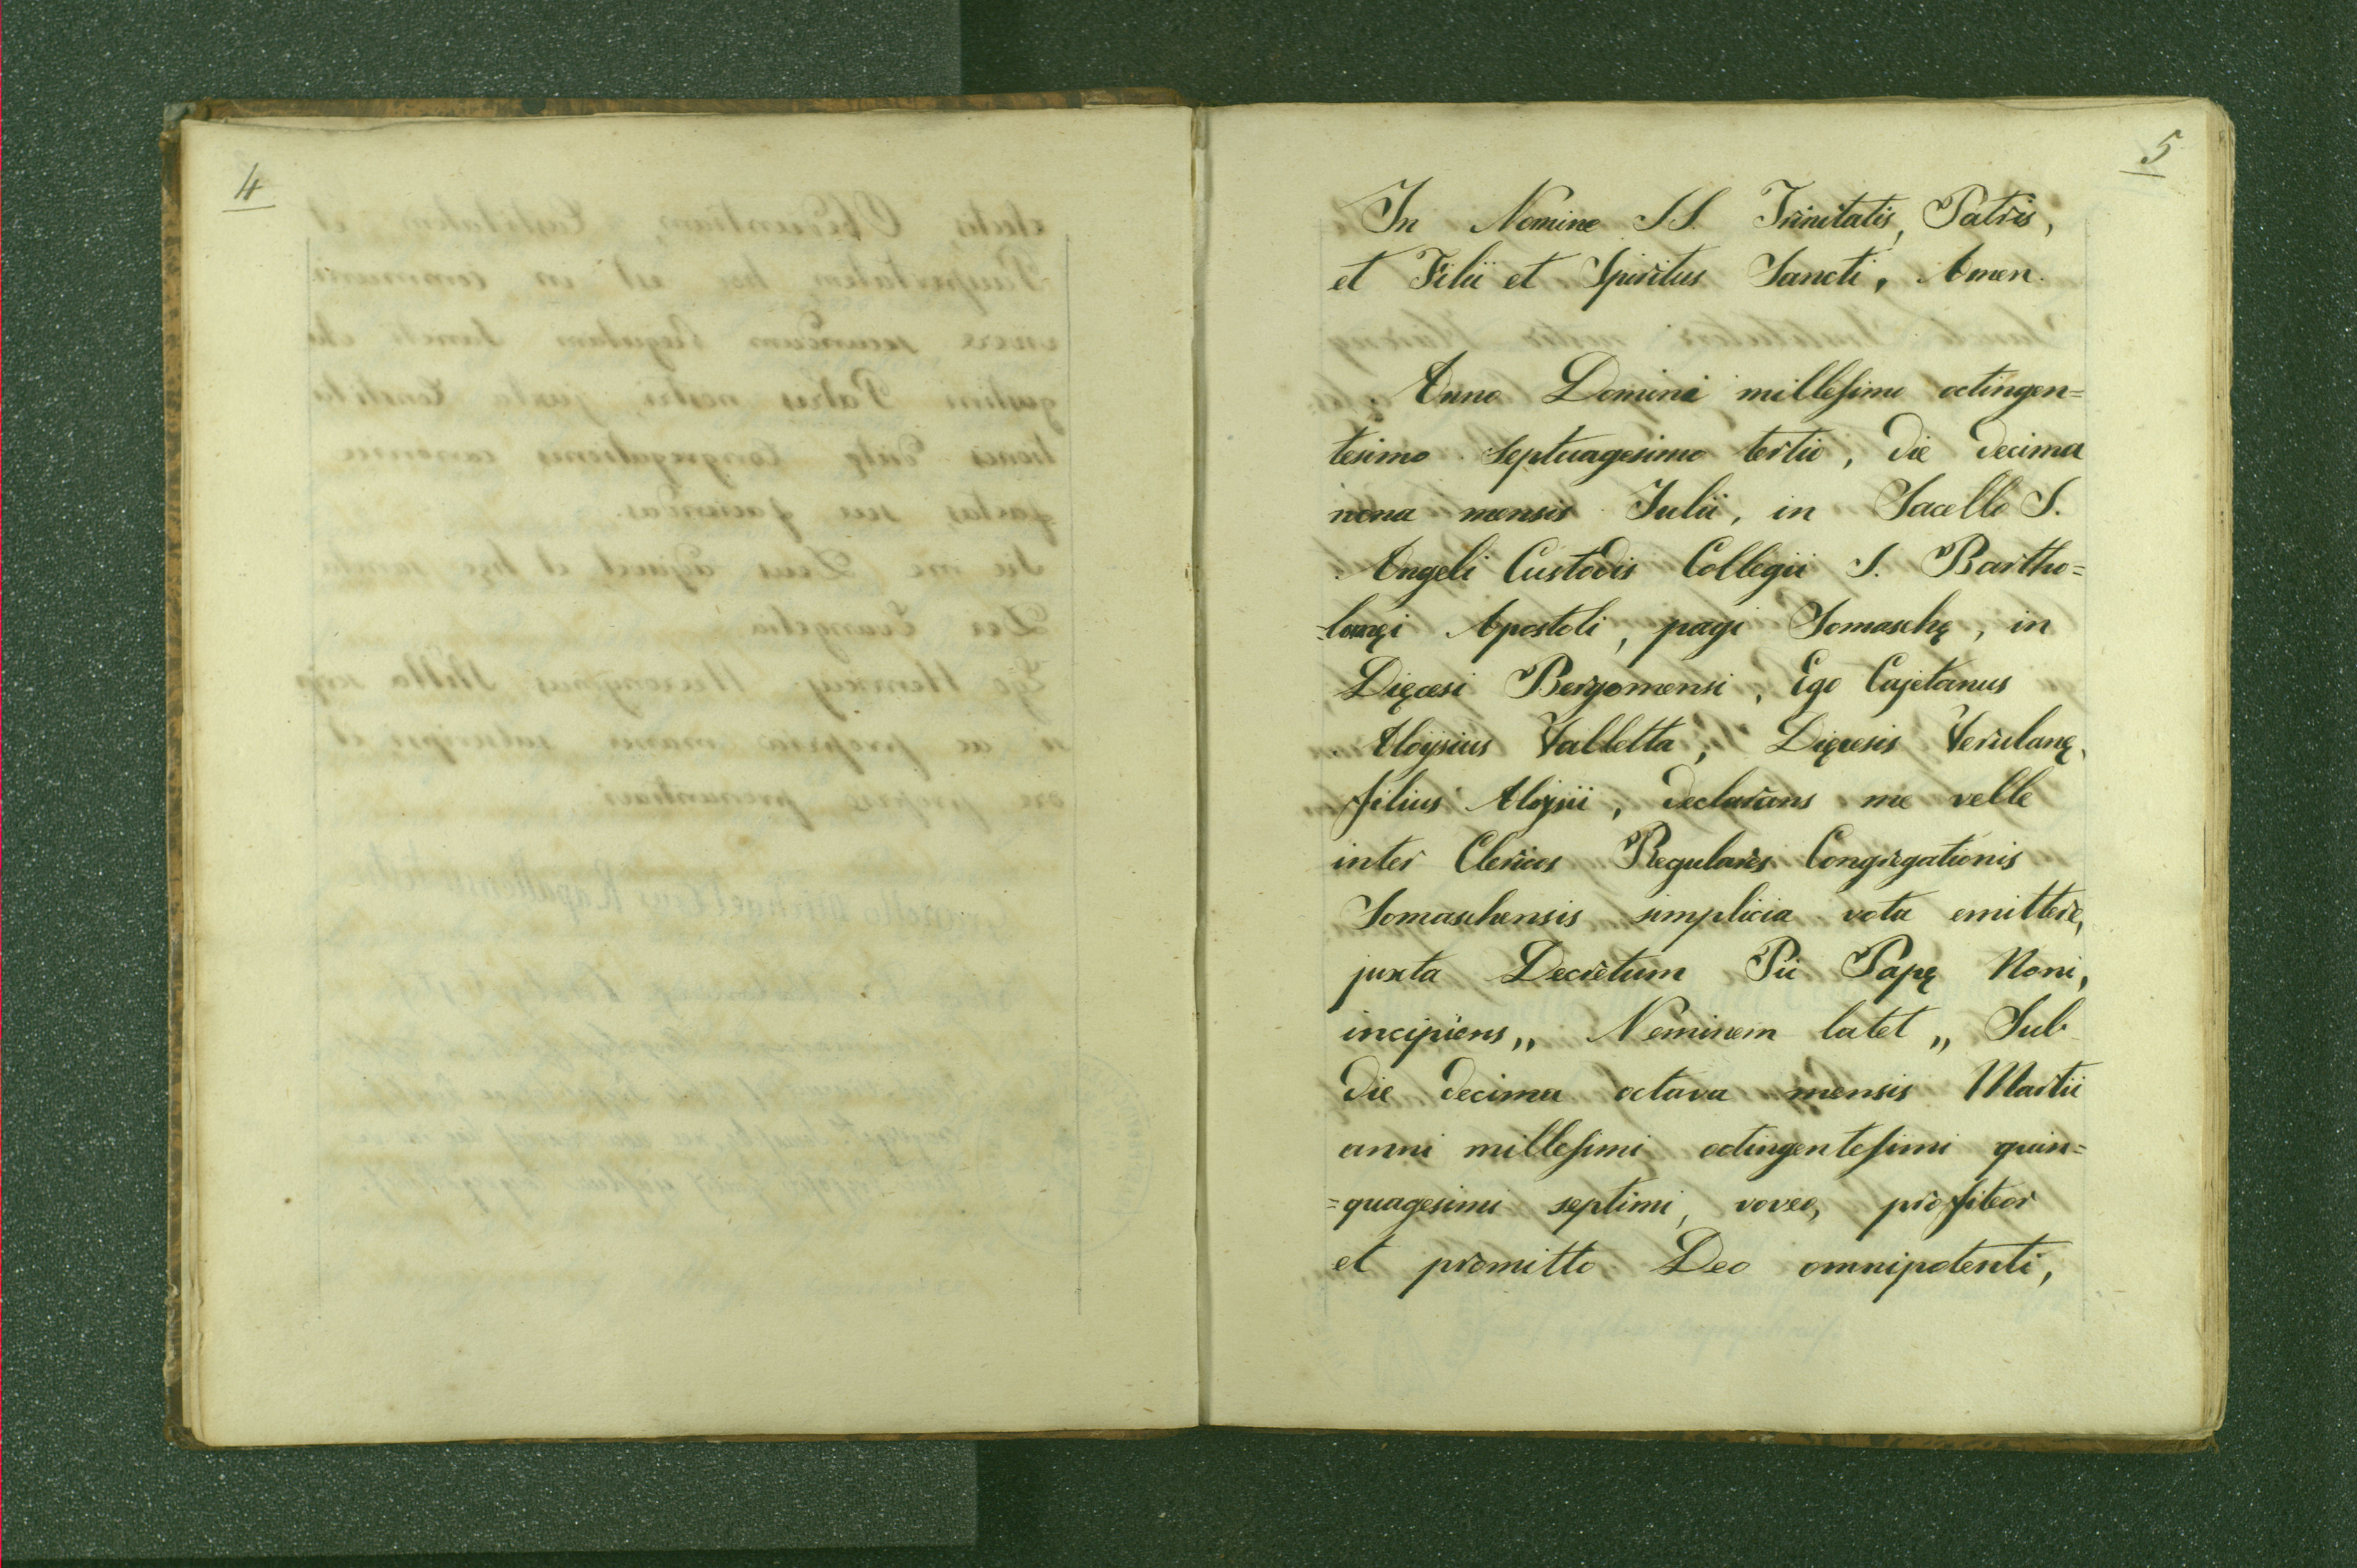 4
5
In Nomine SS. Trinitatis, Patris,
et Filii et Spiritus Sancti, Amen.
Anno Domini millesimo octingen=
tesimo septuagesimo tertio, die decima
nona mensis Julii, in Sacello S.
Angeli Custodis Collegii S. Bartho=
=lomęi Apostoli, pagi Somaschę, in
Dięcesi Bergomensi, Ego Cajetanus
Aloysius Valletta, Dięcesis Verulanę,
filius Aloysii, declarans me velle
inter Clericos Regulares Congregationis
Somaschensis simplicia vota emittere,
juxta Decretum Pii Papę Noni,
incipiens „ Neminem latet „ Sub
die decima octava mensis Martii
anni millesimi octingentesimi quin=
=quagesimi septimi, voveo, profiteor
et promitto Deo omnipotenti,